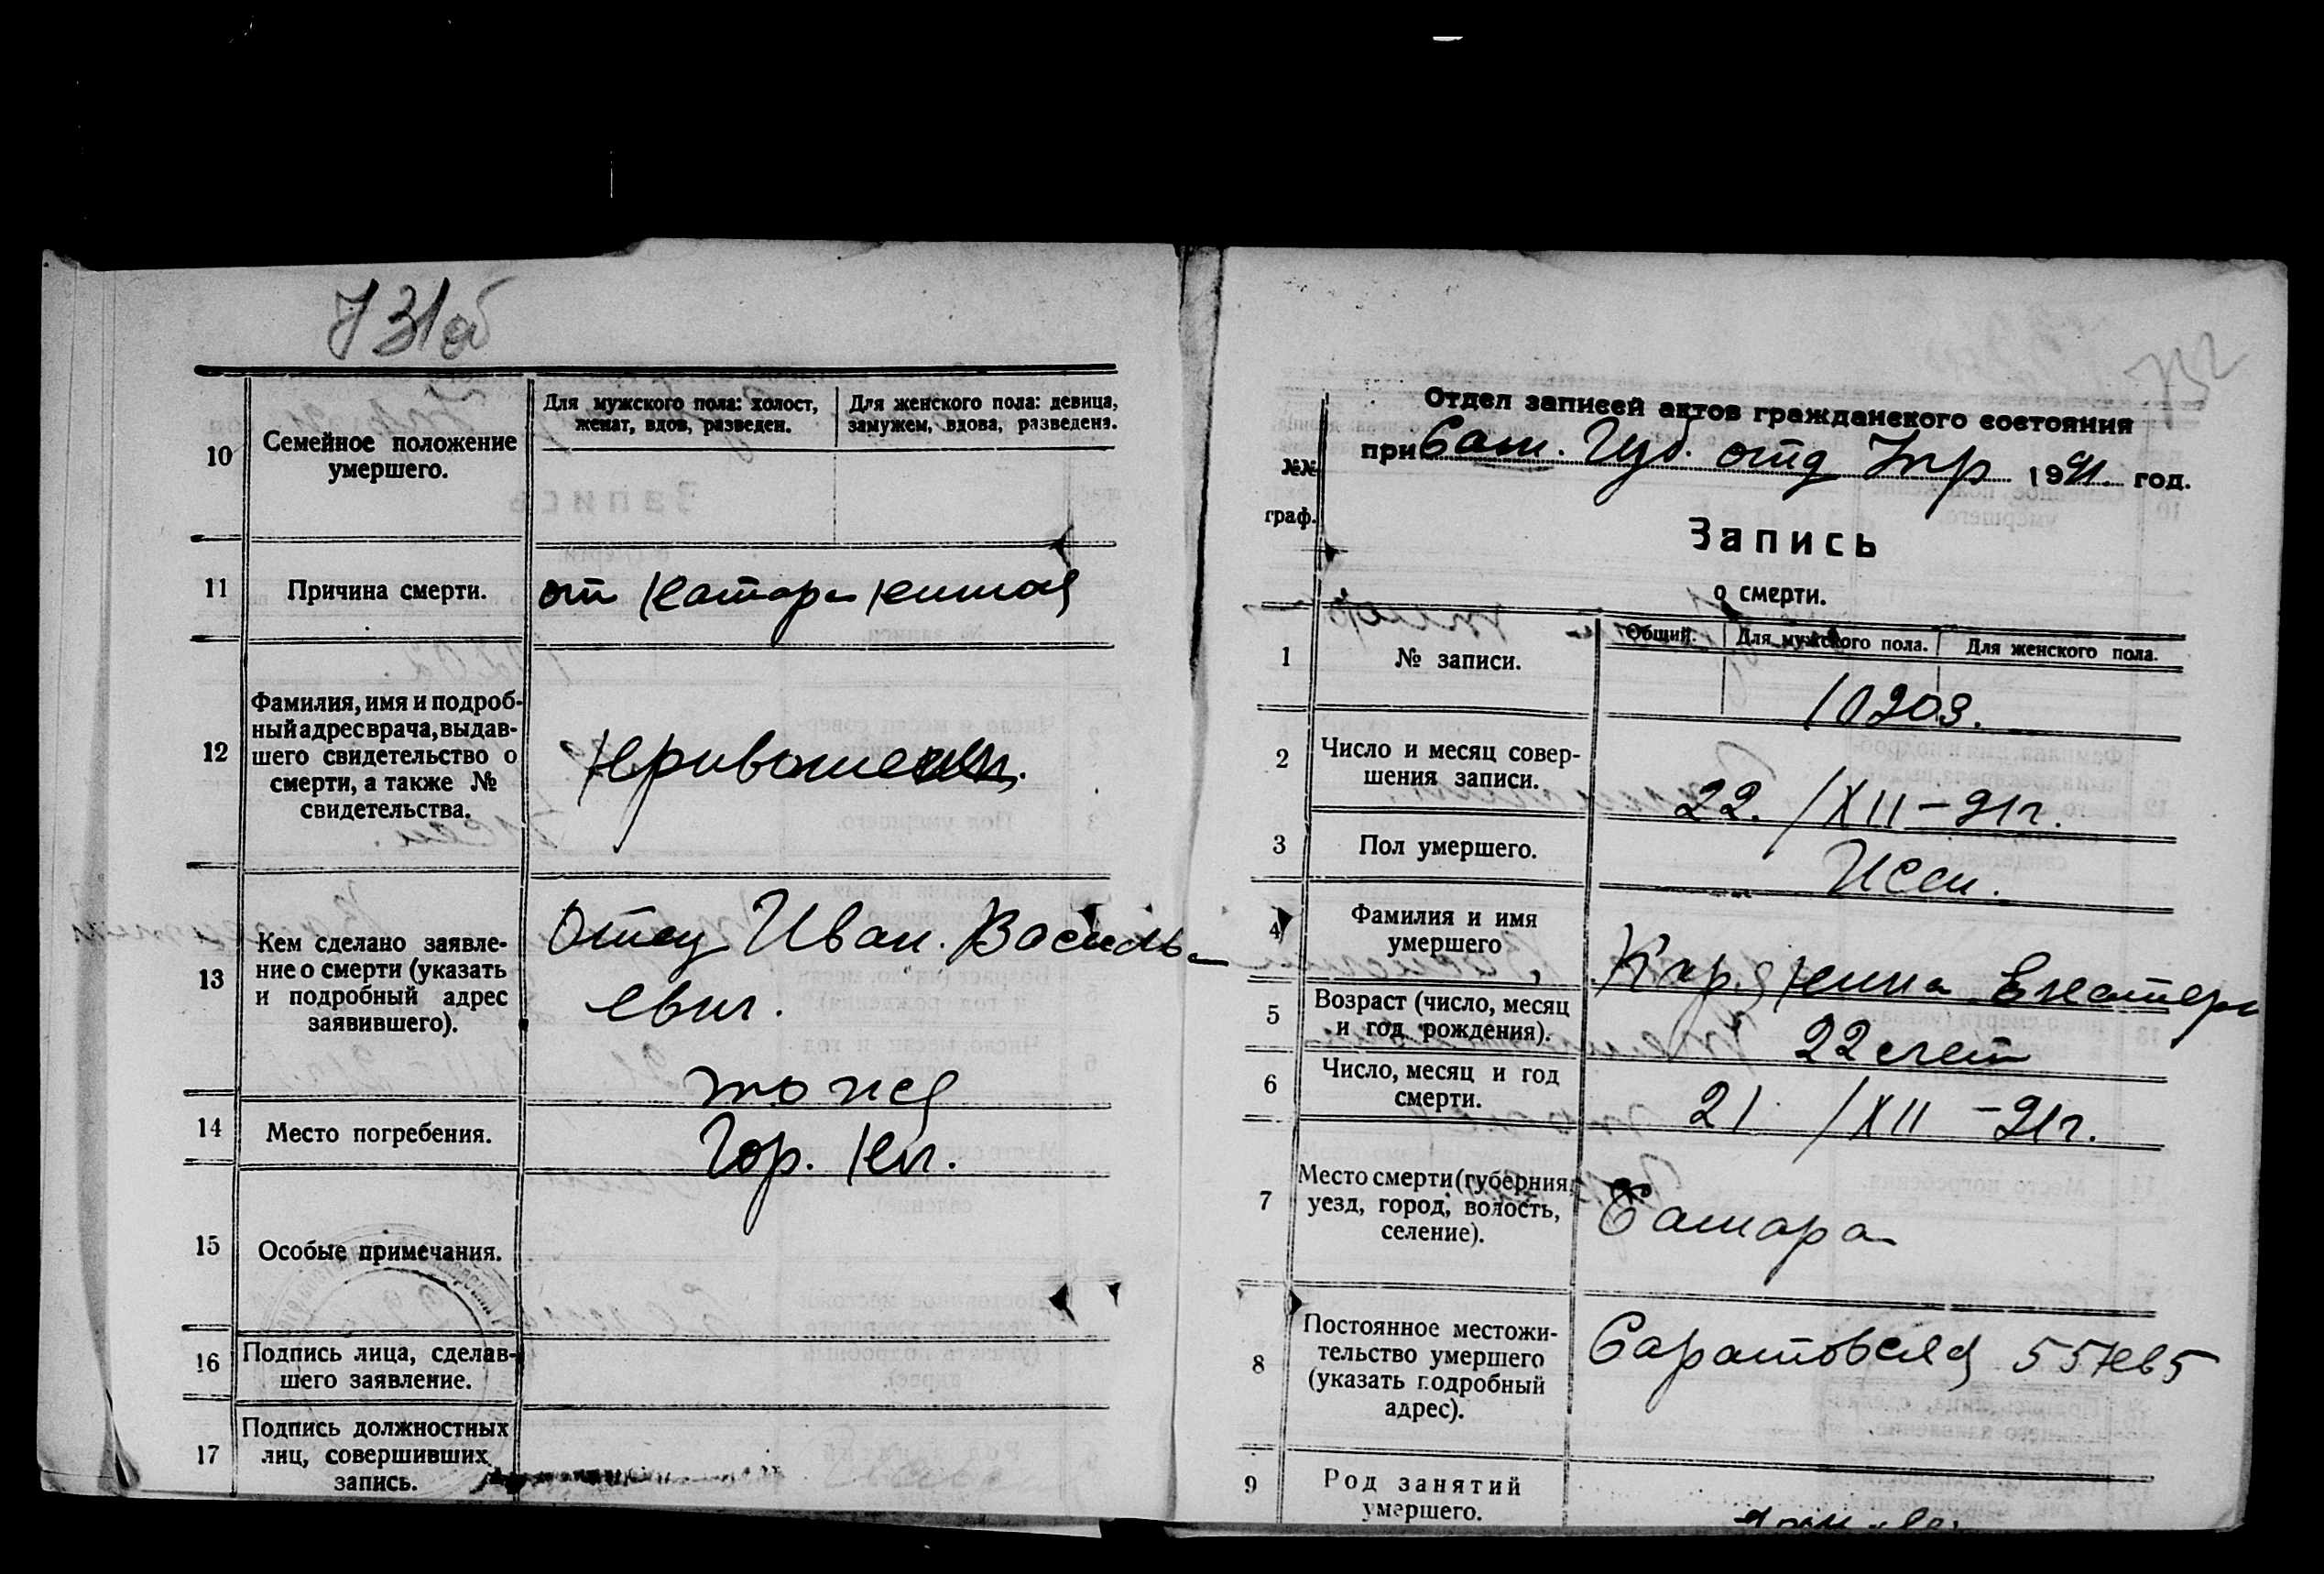 731об
10
Семейное положение
умершего.
Для мужского пола: холост,
женат, вдов, разведен.
Для женского пола: девица,
замужем, вдова, разведена.
11
Причина смерти.
от катара кишок
12
Фамилия, имя и подроб-
ный адрес врача, выдав-
шего свидетельство о
смерти, а также №
свидетельства.
13
Кем сделано заявле-
ние о смерти (указать
и подробный адрес
заявившего).
Отец Иван. Василь-
евич.
тоже
14
Место погребения.
Гор. кл.
15
Особые примечания.
16
Подпись лица, сделав-
шего заявление.
17
Подпись должностных
лиц, совершивших
запись.
732
Отдел записей актов гражданского состояния
при Сам. Губ. отд Упр 1921 год.
№№
граф.
Запись
о смерти.
1
№ записи.
Общий.
Для мужского пола.
Для женского пола.
10203.
2
Число и месяц совер-
шения записи.
22. /XII – 21г.
3
Пол умершего.
Жен.
4
Фамилия и имя
умершего
Екатери
5
Возраст (число, месяц
и год рождения).
22 лет
6
Число, месяц и год
смерти.
21 /XII – 21г.
7
Место смерти (губерния,
уезд, город, волость,
селение).
Самара
8
Постоянное местожи-
тельство умершего
(указать подробный
адрес).
Саратовская 55 кв 5
9
Род занятий
умершего.